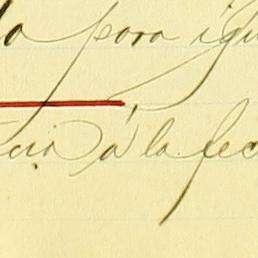 la para igu
cia á la fec